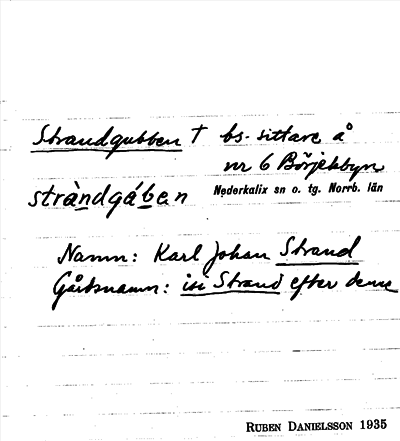 Strandgubben † bs. sittare å
nr 6 Börjelsbyn
stràndgúben Nederkalix sn o. tg. Norrb. län
Namn: Karl Johan Strand
Gårdsnamn: isi Strand efter denne
RUBEN DANIELSSON 1935